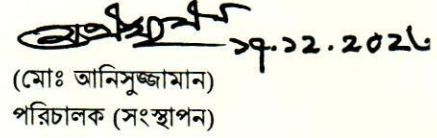 ১৭.১২.২০২৫
(মোঃ আনিসুজ্জামান)
পরিচালক (সংস্থাপন)